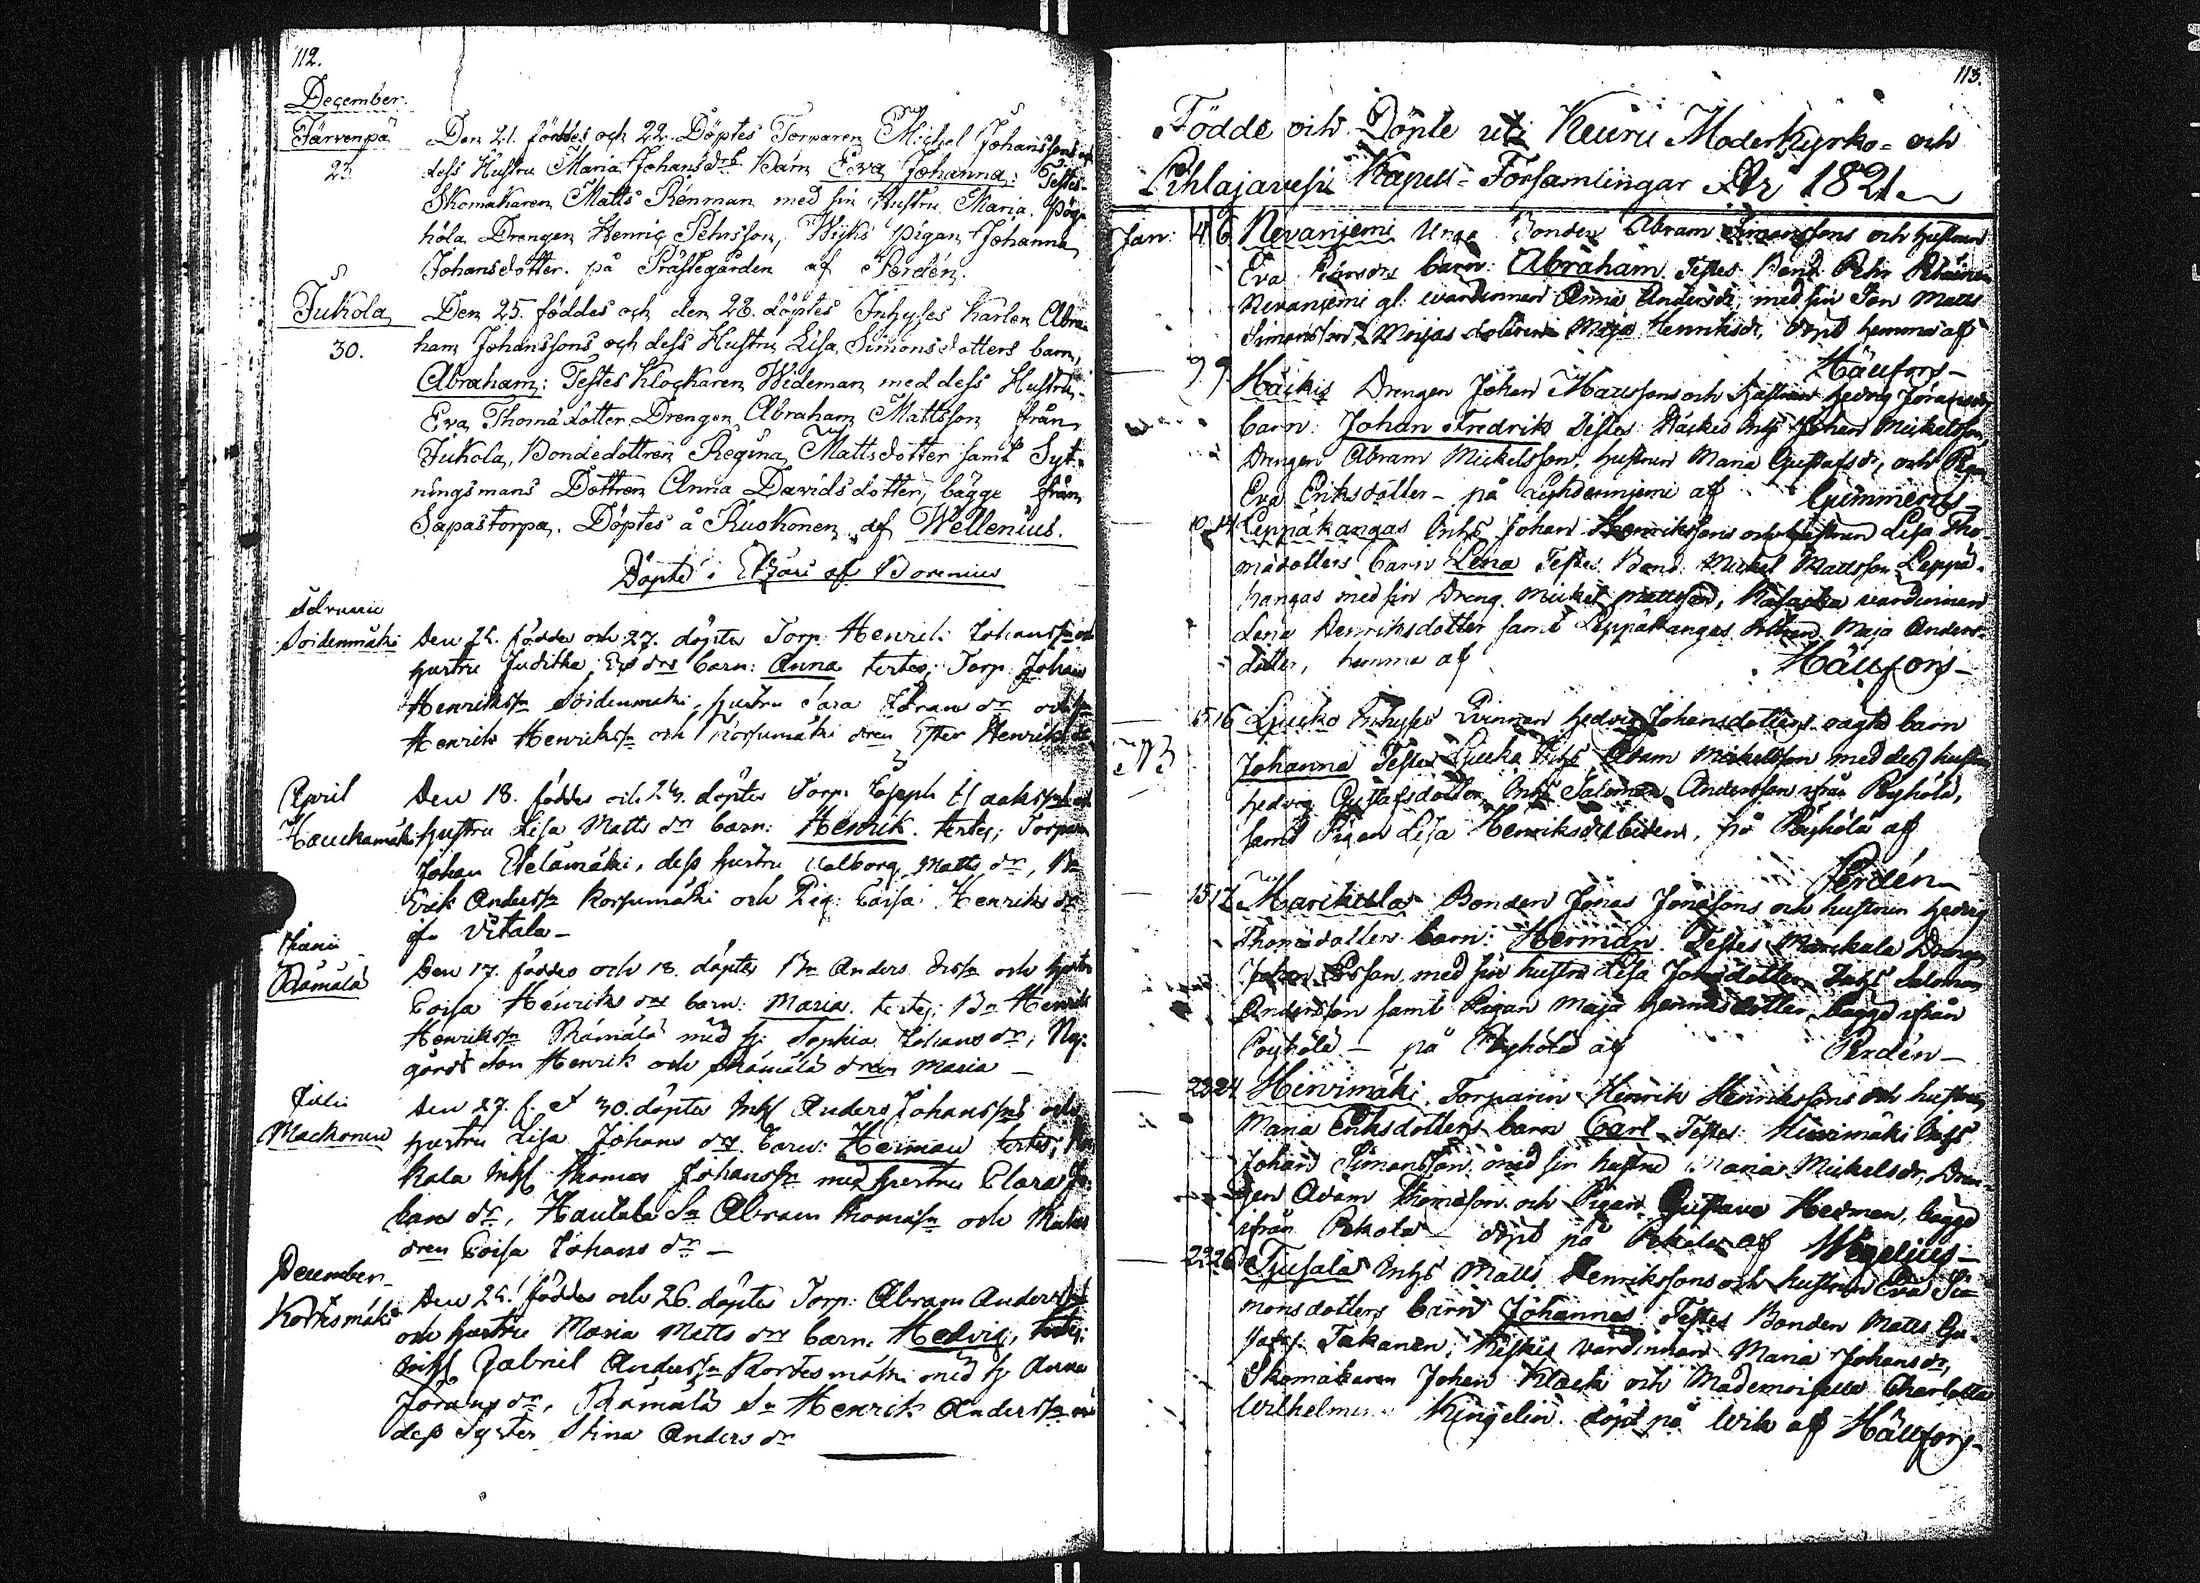 112.
December.
Tärvenpä Den 21. föddes och 22. Döptes Torparen Michel Johanssons och
23. dess Hustru Maria Johansdrs Barn Eva Johanna: Testes
Skomakaren Matts Renman med sin Hustru Maria. Pög-
höla Drengen Henric Pehrsson, Wiks pigan Johanna
Johansdotter. på Prästegården af Perdén.
Jukola Den 25. föddes och den 28. döptes Inhyses Karlen Abra-
30. ham Johanssons och dess Hustru Lisa Simonsdotters barn,
Abraham: Testes Klockaren Wideman med dess Hustru
Eva Thomædotter Drengen Abraham Mattsson från
Jukola, Bondedottren Regina Mattsdotter samt Syt-
ningsmans Dottren Anna Davidsdotter, bägge från
Sapastorpa. Döptes å Ruokonen af Wellenius.
Döpte i Etzäri af Borenius
Februarii
Soidenmäki Den 24. föddes och 27. döptes Torp: Henrik Johanssns och
hustru Juditha drs barn: Anna testes; Torp: Johan
Henrikssn Soidenmäki, hustru Sara Jöransdr och
Henrik Henrikssn och Korsumäki dren Ester Henriksdr
April Den 18. föddes och 24. döptes Torp: Joseph Isakssns och
Hauckamäki hustru Lisa Matts drs barn: Henrik. testes; Torparen
Johan Etelämäki, dess hustru Valborg Matts dr, Bn
Erik Anderssn Korsumäki och Pig: Caisa Henriks dr
ifr. Vitala
Rämälä Den 17. föddes och 18. döptes Bn Anders och hustru
Caisa Henriks drs barn: Maria. testes; Bn Henrik
Henrikssn Rämälä med h: Sophia Johans dr, Ny-
gårds son Henrik och Rämälä dren Maria
Julii Den 27. f. et 30. döptes Inhs Anders Johanssns och
Mackonen hustru Lisa Johans drs barn: Herman testes;
kala Inhs Thomas Johanssn med hustru Clara Jo-
hans dr, Hautala Sn Abram Thomassn och
dren Caisa Johans dr
December
Kortesmäki Den 24. föddes och 26. döptes Torp: Abram Anderssns
och hustru Maria Matts drs barn: Hedvig, testes;
Inhs Gabriel Anderssn Kortesmäki med h: Anna
Jörans dr, Rämälä Sn Henrik Anderssn och
dess syster Stina Anders dr
113.
Födde och Döpte uti Keuru Moderkyrko- och
Pihlajavesi Kapell-Församlingar År 1821.
Jan: 4 6 Nevanjemi Unga Bonden Abram Simonssons och hustrun
Eva barn: Abraham. Testes Bond: Pehr
Nevanjemi gl: värdinnan Anna Andersdr, med sin Son Matts
Simonsson, Moijas Maja Henriksdr, döpt hemma af
Hällfors
7 9 Häckis Drengen Johan Mattssons och hustrun Hedvig Jöransdrs
barn: Johan Fredrik Testes Häckis Inhs Johan Mickelsson,
Drengen Abram Mickelsson, hustrun Maria Gustafsdr, och Pigan
Eva Eriksdotter - på af Gummerus
10 14 Leppäkangas Inhs Johan Henrikssons och hustrun Lisa Tho-
mædotters barn Lena Testes Bond: Mickel Mattsson Leppä-
kangas med sin Dreng Mickel Mattsson, värdinnan
Lena Henriksdotter samt Leppäkangas Maja Anders-
dotter, hemma af Hällfors
15 16 Ljucko Inhyses Qvinnan Hedvig Johansdotters oägta barn
NB Johanna Testes Ljucko Inhs Abram Mickelsson med dess hustru
Hedvig Gustafsdotter, Inhs Salomon Andersson ifrån Pöyhölä,
samt Pigan Lisa Henriksdr, på Pöyhölä af
Perdén
15 17 Marikula Bonden Jonas Jonassons och hustrun Hedvig
Thomædotters barn: Herman. Testes Marikala Drengen
Johan med sin hustru Lisa Jonædotter, Inhs Salomon
Andersson samt Pigan Maja dotter, bägge ifrån
Pöyhölä - på Pöyhölä af Perdén
23 24 Hirvimäki Torparen Henrik Henrikssons och hustrun
Maria Eriksdotters barn Carl Testes Hirvimäki Inhs
Johan Simonsson med sin hustru Maria Mickelsdr, Dren-
gen Adam Thomæson och Pigan Gustava Hedman, bägge
ifrån Pekola - döpt på Pekola af Wegelius
26 Tjusala Inhs Matts Henrikssons och hustrun Eva Si-
monsdotters barn Johannes Testes Bonden Matts Gu-
stafs: Takanen, värdinnan Maria Johansdr,
Skomakaren Johan Klack och Mademoiselle Charlotta
Wilhelmina Kingelin döpt på Wik af Hällfors